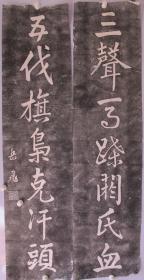 三聲馬蹀閼氏血
五伐旗梟克汗頭
岳飛